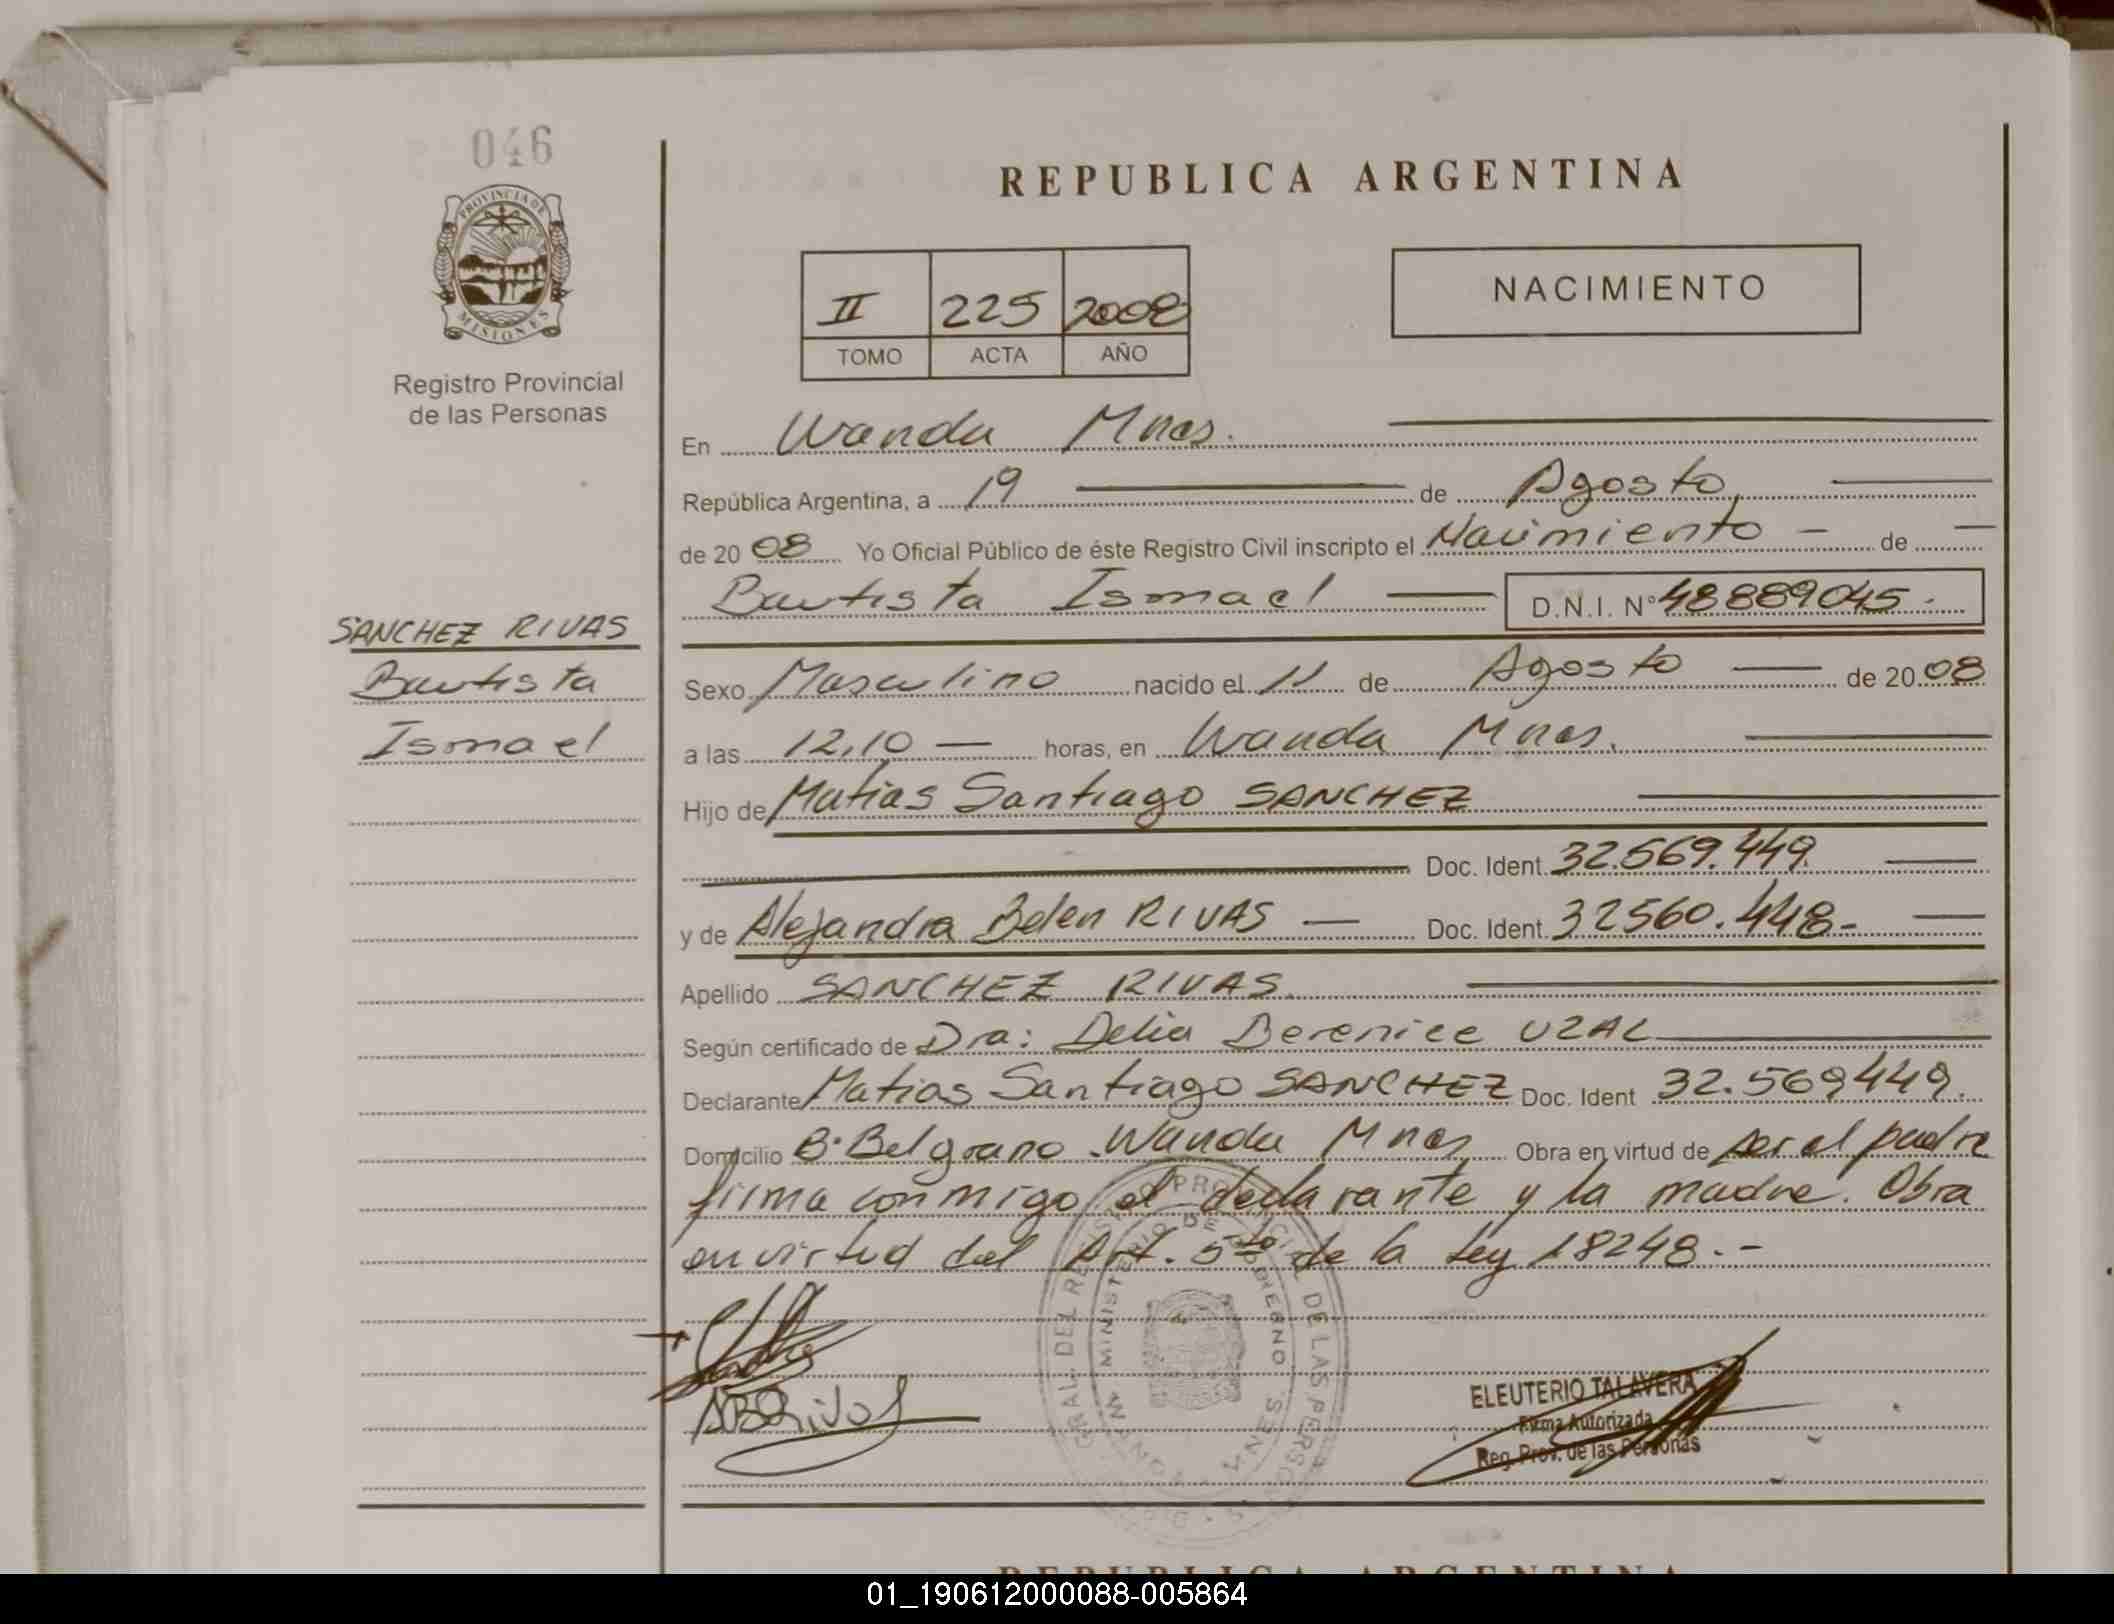 046
PROVINCIA DE
MISIONES
Registro Provincial
de las Personas
SANCHEZ RIVAS
Bautista
Ismael
REPUBLICA ARGENTINA
II 225 2008
TOMO ACTA AÑO
NACIMIENTO
En Wanda Mnes.
República Argentina, a 19 de Agosto
de 20 08 Yo Oficial Público de éste Registro Civil inscripto el Nacimiento - de
Bautista Ismael D.N.I. N° 48889045.
Sexo Masculino nacido el 11 de Agosto de 20 08
a las 12,10 horas, en Wanda Mnes.
Hijo de Matias Santiago SANCHEZ
Doc. Ident. 32.569.449.
y de Alejandra Belen RIVAS Doc. Ident. 32560.448-
Apellido SANCHEZ RIVAS.
Según certificado de Dra: Delia Berenice UZAL
Declarante Matias Santiago SANCHEZ Doc. Ident 32.569449.
Domicilio B° Belgrano Wanda Mnes Obra en virtud de ser el padre
firma conmigo el declarante y la madre. Obra
en virtud del Art. 5to de la Ley 18248.-
ABRivas
ELEUTERIO TALAVERA
Firma Autorizada
Reg. Prov. de las Personas
REPUBLICA ARGENTINA
01_190612000088-005864